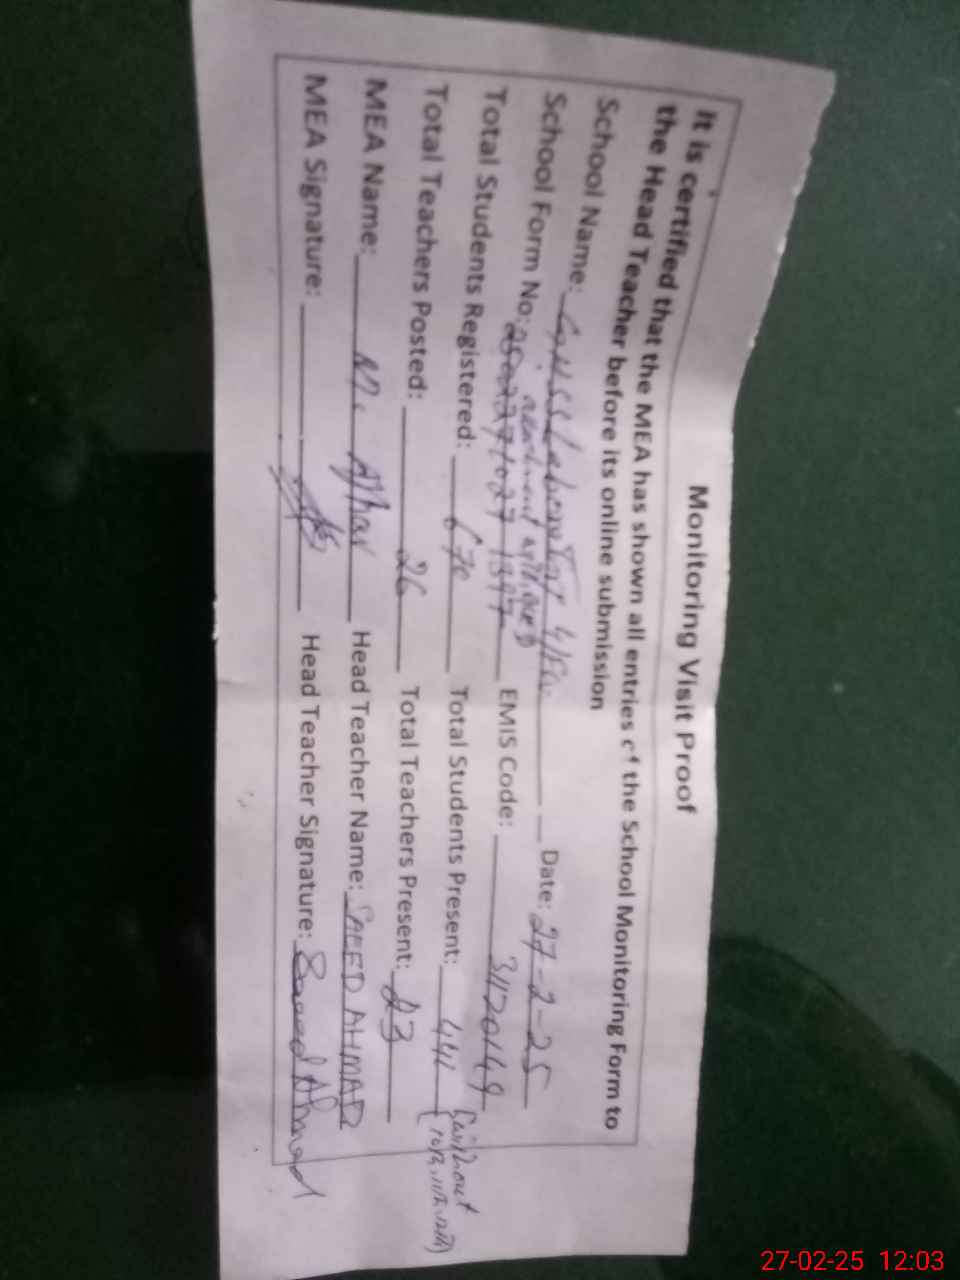 Monitoring Visit Proof
It is certified that the MEA has shown all entries of the School Monitoring Form to
the Head Teacher before its online submission
School Name: GHSS Date: 27-2-25
School Form No: EMIS Code: 31120149
Total Students Registered: 670 Total Students Present: 441 (without
Total Teachers Posted: 26 Total Teachers Present: 23
MEA Name: M. Head Teacher Name: SAEED AHMAD
MEA Signature: Head Teacher Signature: Saeed Ahmad
27-02-25 12:03